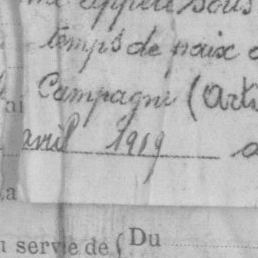 appelé sous
temps de paix
Campagne (arti
avril 1919 a
u servie de ( Du